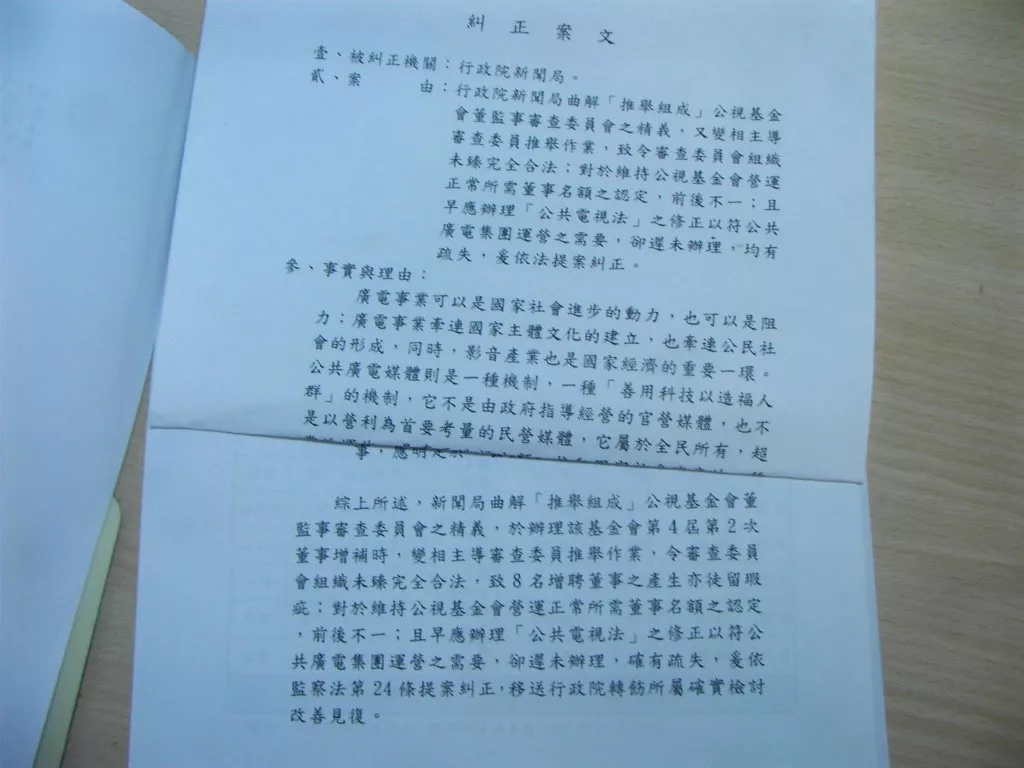 糾正案文
壹、被糾正機關：行政院新聞局。
貳、案　　由：行政院新聞局曲解「推舉組成」公視基金
會董監事審查委員會之精義，又變相主導
審查委員推舉作業，致令審查委員會組織
未臻完全合法；對於維持公視基金會營運
正常所需董事名額之認定，前後不一；且
早應辦理「公共電視法」之修正以符公共
廣電集團運營之需要，卻遲未辦理，均有
疏失，爰依法提案糾正。
參、事實與理由：
廣電事業可以是國家社會進步的動力，也可以是阻
力；廣電事業牽連國家主體文化的建立，也牽連公民社
會的形成，同時，影音產業也是國家經濟的重要一環。
公共廣電媒體則是一種機制，一種「善用科技以造福人
群」的機制，它不是由政府指導經營的官營媒體，也不
是以營利為首要考量的民營媒體，它屬於全民所有，超
綜上所述，新聞局曲解「推舉組成」公視基金會董
監事審查委員會之精義，於辦理該基金會第4屆第2次
董事增補時，變相主導審查委員推舉作業，令審查委員
會組織未臻完全合法，致8名增聘董事之產生亦徒留瑕
疵；對於維持公視基金會營運正常所需董事名額之認定
，前後不一；且早應辦理「公共電視法」之修正以符公
共廣電集團運營之需要，卻遲未辦理，確有疏失，爰依
監察法第24條提案糾正，移送行政院轉飭所屬確實檢討
改善見復。